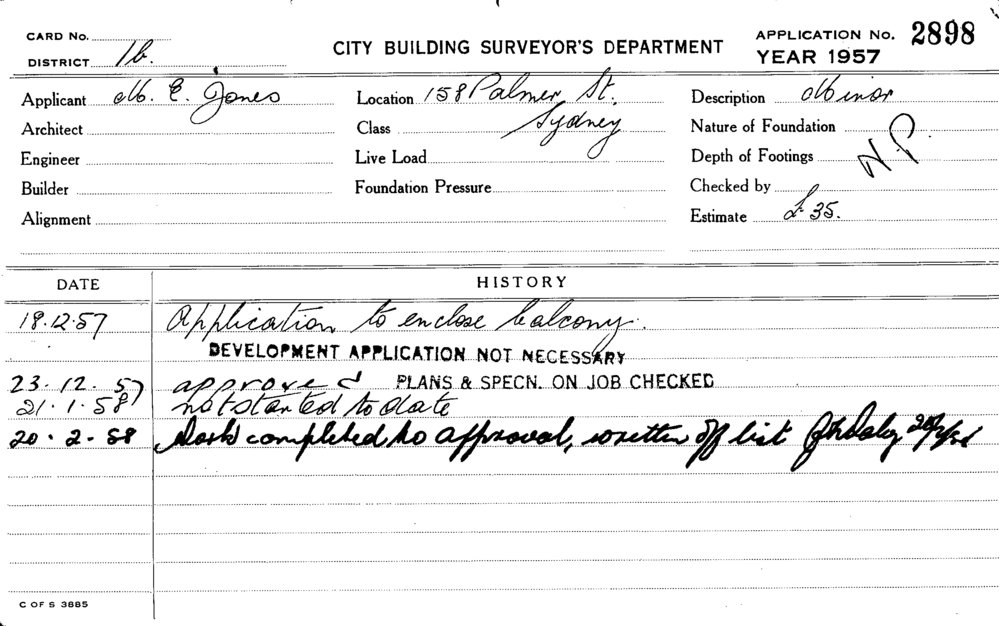 CARD No.
DISTRICT 1b.
CITY BUILDING SURVEYOR'S DEPARTMENT
APPLICATION No. 2898
YEAR 1957
Applicant M. E. Jones
Location 158 Palmer St.
Sydney
Description Minor
Architect
Class
Nature of Foundation
N.P.
Engineer
Live Load
Depth of Footings
Builder
Foundation Pressure
Checked by
Alignment
Estimate £35.
DATE HISTORY
18.12.57 Application to enclose balcony.
DEVELOPMENT APPLICATION NOT NECESSARY
23.12.57 approved PLANS & SPECN. ON JOB CHECKED
21.1.58 not started to date
20.2.58 Work completed to approval, written off list
C OF S 3885